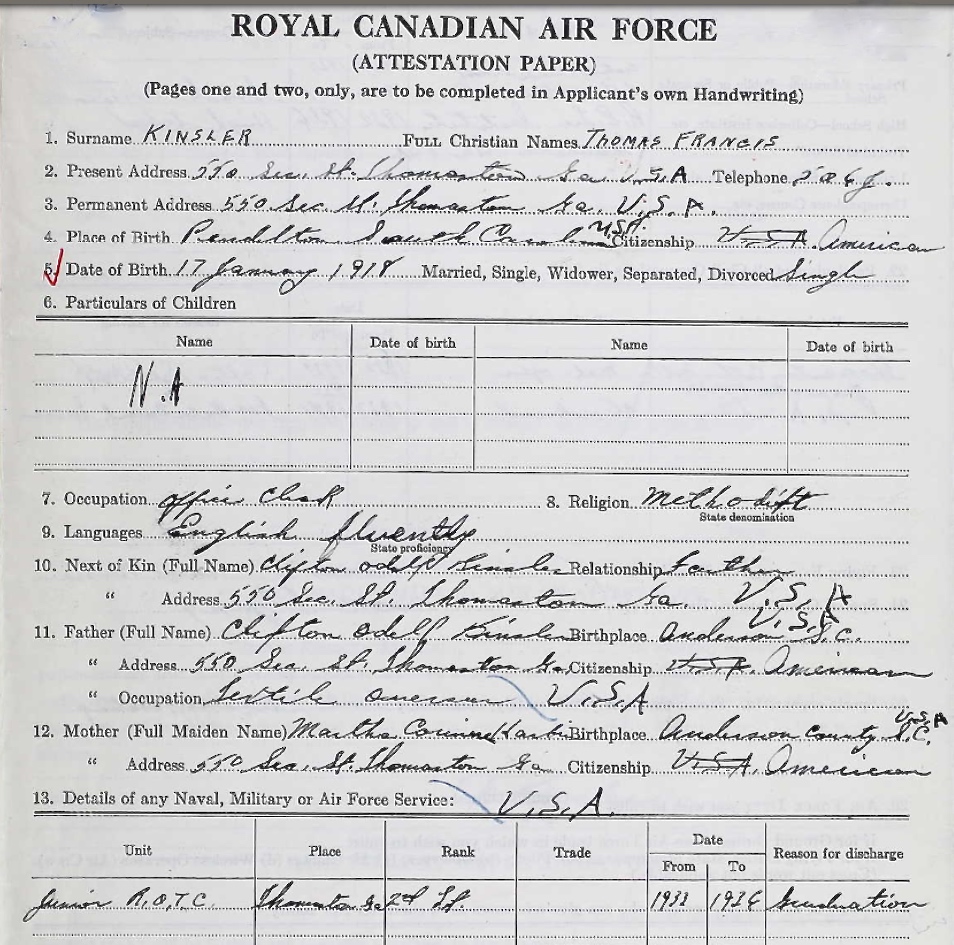 ROYAL CANADIAN AIR FORCE
(ATTESTATION PAPER)
(Pages one and two, only, are to be completed in Applicant's own Handwriting)
1. Surname KINSLER FULL Christian Names THOMAS FRANCIS
2. Present Address 550 Sec. St. Thomaston Ga. U.S.A Telephone
3. Permanent Address 550 Sec St. Thomaston Ga. U.S.A.
4. Place of Birth Pendilton South Carolina U.S.A. Citizenship U.S.A. American
5. Date of Birth 17 January 1918 Married, Single, Widower, Separated, Divorced Single
6. Particulars of Children
Name Date of birth Name Date of birth
N.A
7. Occupation office Clerk 8. Religion Methodist
State denomination
9. Languages English fluently
State proficiency
10. Next of Kin (Full Name) Clifton Odell Kinsler Relationship Father
" Address 550 Sec. St. Thomaston Ga. U.S.A
11. Father (Full Name) Clifton Odell Kinsler Birthplace Anderson S.C. U.S.A
" Address 550 Sec. St. Thomaston Ga. Citizenship U.S.A. American
" Occupation Textile U.S.A
12. Mother (Full Maiden Name) Martha Corinne Birthplace Anderson County S.C. U.S.A
" Address 550 Sec. St. Thomaston Ga Citizenship U.S.A. American
13. Details of any Naval, Military or Air Force Service: U.S.A.
Unit Place Rank Trade Date Reason for discharge
From To
Junior R.O.T.C. Thomaston Ga 2nd Lt. 1933 1936 Graduation